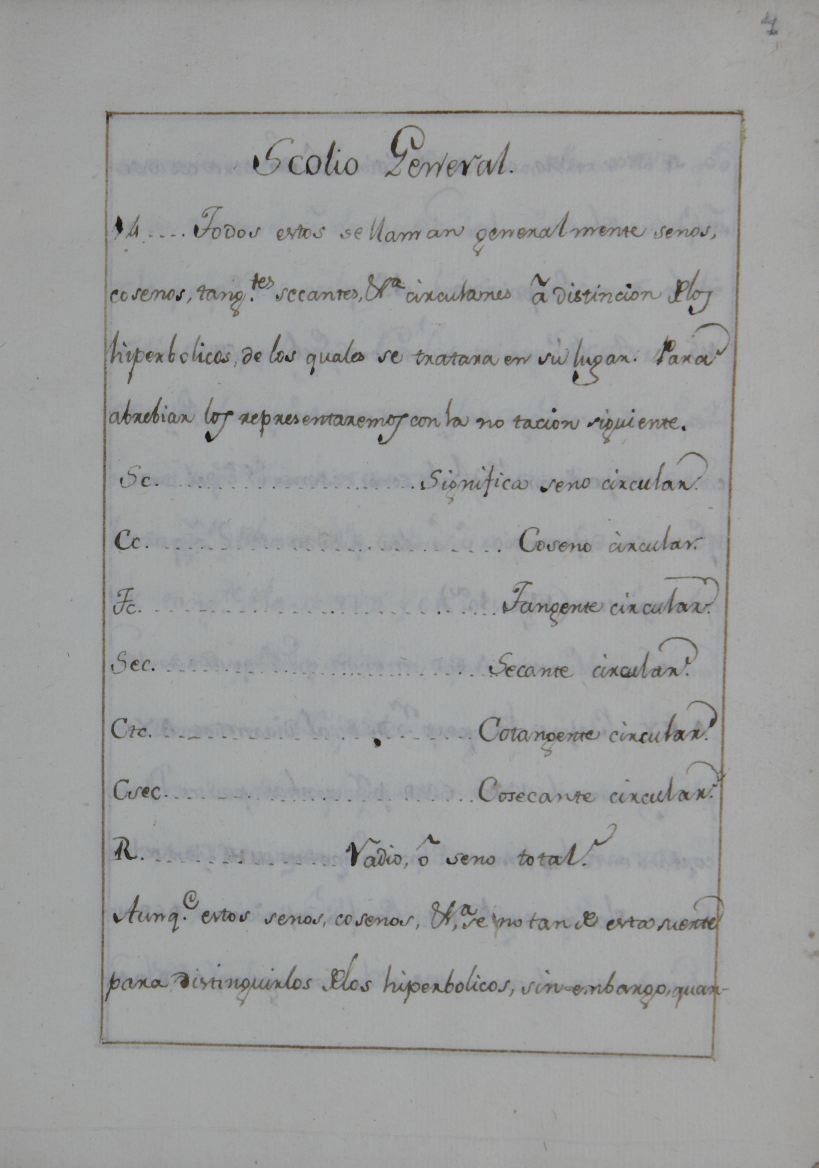 4
Scolio General.
14.... Todos estos se llaman generalmente senos,
cosenos, tang.tes secantes, &a circulares â distincion de los
hiperbolicos, de los quales se tratara en su lugar. Para
abrebiar los representaremos con la notacion siguiente.
Sc. ........................ Significa seno circular.
Cc. ........................ Coseno circular.
Tc. ........................ Tangente circular.
Sec. ........................ Secante circular.
Ctc. ........................ Cotangente circular.
Csec. ........................ Cosecante circular.
R. ................ Radio, ô seno total.
Aunq.e estos senos, cosenos, &a, se notan de esta suerte
para distinguirlos de los hiperbolicos, sin embargo, quan-